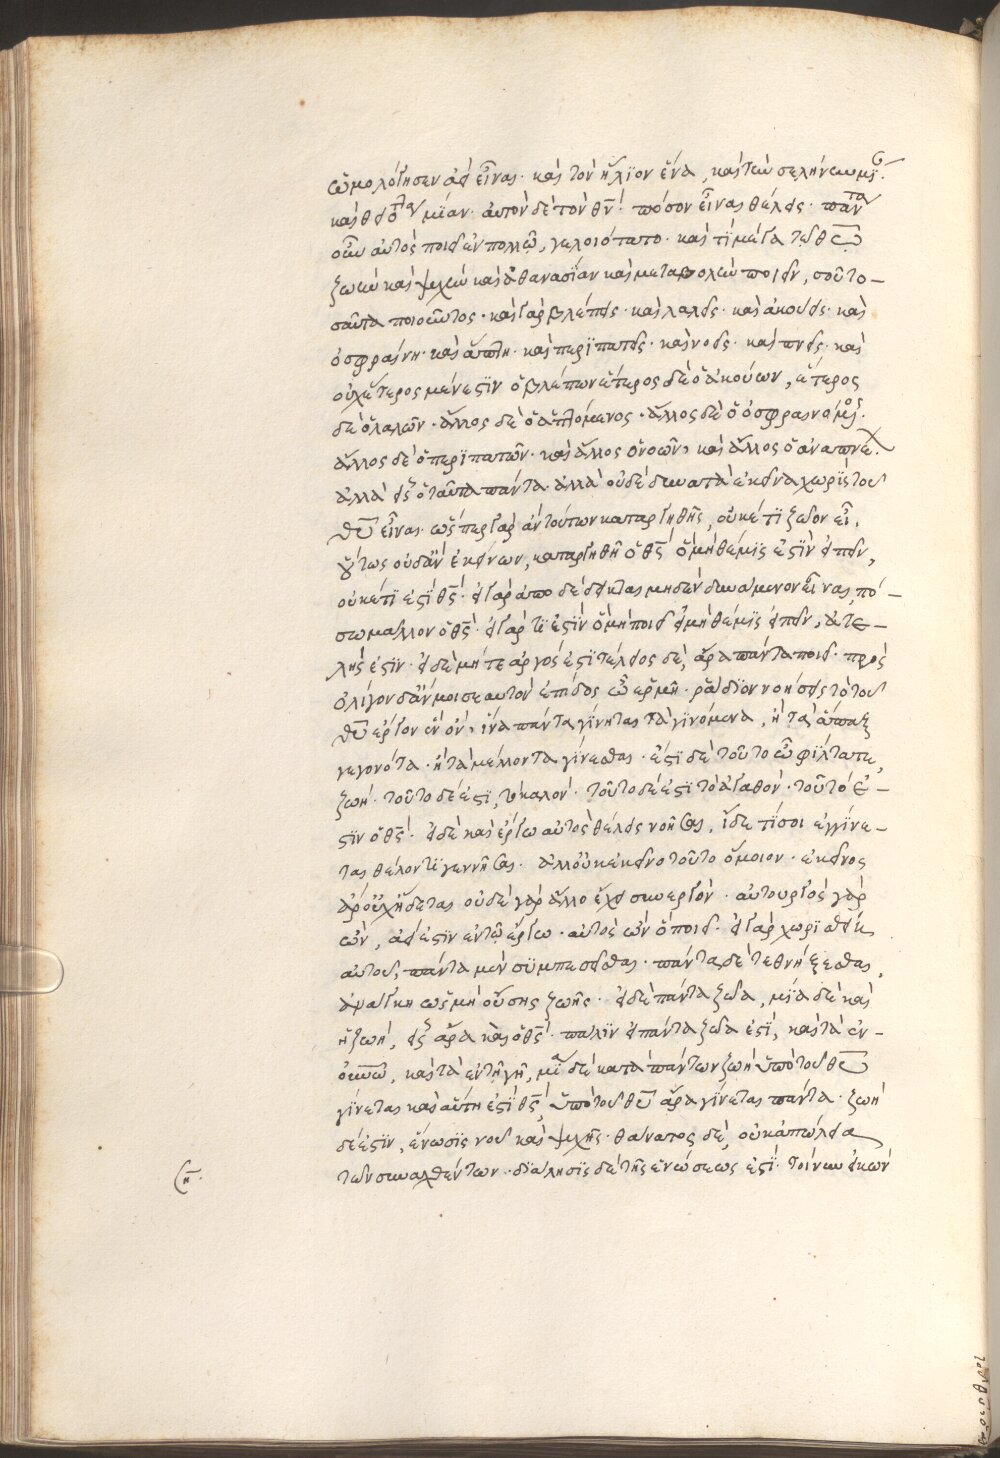 ὡμολόγησεν ἀεὶ εἶναι· καὶ τὸν ἥλιον ἕνα, καὶ τὴν σελήνην μίαν·
καὶ θειότητα μίαν· αὐτὸν δὲ τὸν θν̅· πόσον εἶναι θέλεις· πάντα
οὖν αὐτὸς ποιεῖ ἐν πολλῷ, γελοιότατο· καὶ τί μέγα τῷ θω̅
ζωὴν καὶ ψυχὴν καὶ ἀθανασίαν καὶ μεταβολὴν ποιεῖν, σοῦ το-
σαῦτα ποιοῦντος· καὶ γὰρ βλέπεις· καὶ λαλεῖς· καὶ ἀκούεις· καὶ
ὀσφραίνῃ· καὶ ἅπτῃ· καὶ περιπατεῖς· καὶ νοεῖς· καὶ πνεῖς· καὶ
οὐχ ἕτερος μέν ἐστιν ὁ βλέπων ἕτερος δὲ ὁ ἀκούων, ἕτερος
δὲ ὁ λαλῶν· ἄλλος δὲ ὁ ἁπτόμενος· ἄλλος δὲ ὁ ὀσφραινόμενος·
ἄλλος δὲ ὁ περιπατῶν· καὶ ἄλλος ὁ νοῶν, καὶ ἄλλος ὁ ἀναπνέων·
ἀλλὰ εἷς ὁ ταῦτα πάντα· ἀλλὰ οὐδὲ δυνατὰ ἐκεῖνα χωρὶς τοῦ
θυ̅ εἶναι· ὥσπερ γὰρ ἂν τούτων καταργηθῇς, οὐκέτι ζῷον εἶ,
οὕτως οὐδ' ἂν ἐκείνων, καταργηθῇ ὁ θς̅ ὃ μὴ θέμις ἐστὶν εἰπεῖν,
οὐκέτι ἐστὶ θς̅· εἰ γὰρ ἀποδέδεικται μηδὲν δυνάμενον εἶναι, πό-
σῳ μᾶλλον ὁ θς̅· εἰ γάρ τι ἐστὶν ὃ μὴ ποιεῖ εἰ μὴ θέμις εἰπεῖν, ἀτε-
λής ἐστιν· εἰ δὲ μήτε ἀργός ἐστι τέλειος δὲ, ἄρα πάντα ποιεῖ· πρὸς
ὀλίγον δ' ἄν μοι σεαυτὸν ἐπιδῷς ὦ ἑρμῆ· ῥᾴδιον νοήσεις τὸ τοῦ
θυ̅ ἔργον ἓν ὂν, ἵνα πάντα γίνηται τὰ γινόμενα, ἢ τὰ ἅπαξ
γεγονότα· ἢ τὰ μέλλοντα γίνεσθαι· ἔστι δὲ τοῦτο ὦ φίλτατε,
ζωή· τοῦτο δέ ἐστι, τὸ καλόν· τοῦτο δέ ἐστι τὸ ἀγαθόν· τοῦτό ἐ-
στιν ὁ θς̅· εἰ δὲ καὶ ἔργῳ αὐτὸς θέλεις νοῆσαι, ἴδε τί σοι ἐγγίνε-
ται θέλοντι γεννῆσαι· ἀλλ' οὐκ ἐκείνῳ τοῦτο ὅμοιον· ἐκεῖνος
ἄρ οὐχ ἥδεται οὐδὲ γὰρ ἄλλο ἔχει συνεργόν· αὐτουργὸς γὰρ
ὤν, ἀεί ἐστιν ἐν τῷ ἔργῳ· αὐτὸς ὢν ὃ ποιεῖ· εἰ γὰρ χωρισθείη
αὐτοῦ, πάντα μὲν συμπεσεῖσθαι· πάντα δὲ τεθνήξεσθαι,
ἀνάγκη ὡς μὴ οὔσης ζωῆς· εἰ δὲ πάντα ζῷα, μία δὲ καὶ
ἡ ζωή, εἷς ἄρα καὶ ὁ θς̅· πάλιν εἰ πάντα ζῷα ἐστί, καὶ τὰ ἐν-
ουνω̅, καὶ τὰ ἐν τῇ γῇ, μία δὲ κατὰ πάντων ζωὴ ὑπὸ τοῦ θυ̅
γίνεται καὶ αὕτη ἐστὶ θς̅, ὑπὸ τοῦ θυ̅ ἄρα γίνεται πάντα· ζωὴ
δέ ἐστιν, ἕνωσις νοῦ καὶ ψυχῆς· θάνατος δὲ, οὐκ ἀπώλεια
τῶν συναχθέντων· διάλυσις δὲ τῆς ἑνώσεως ἐστί· τοίνυν εἰκὼν
η̅·